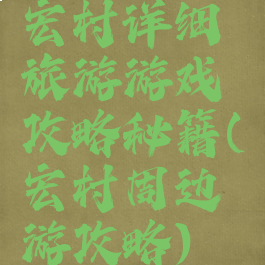 宏村详细
旅游游戏
攻略秘籍(
宏村周边
游攻略)